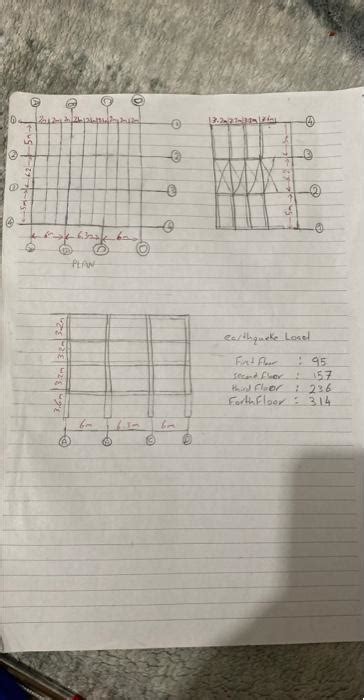 A B C D
1 2m 2m 2m 2.1m 2.1m 2.1m 2m 2m 2m 1
5m
2 2
6.2
3 3
5m
4 4
6m 6.3m 6m
A B C D
PLAN
3.2m 3.2m 3.2m 3.6m 4
5m
3
6.2
2
5m
1
3.2m
3.2m
3.2m
3.6m
6m 6.3m 6m
A B C D
earthquake Load
First Floor : 95
second floor : 157
third Floor : 236
Forth Floor : 314